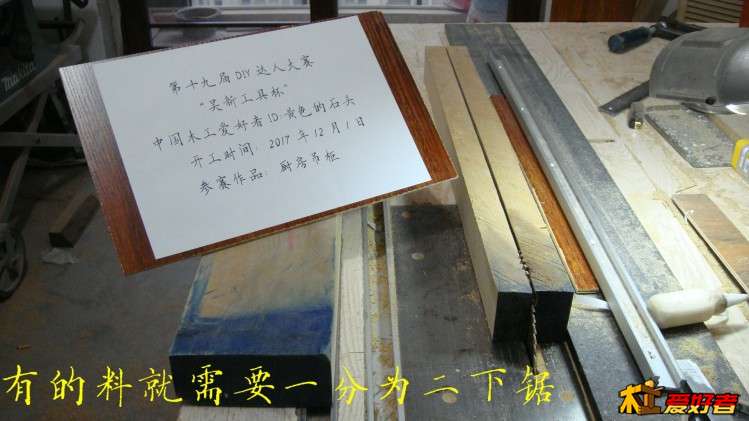 第十九届DIY达人大赛
"昊新工具杯"
中国木工爱好者ID:黄色的石头
开工时间:2017年12月1日
参赛作品:厨房吊柜
makita
有的料就需要一分为二下锯
木工爱好者